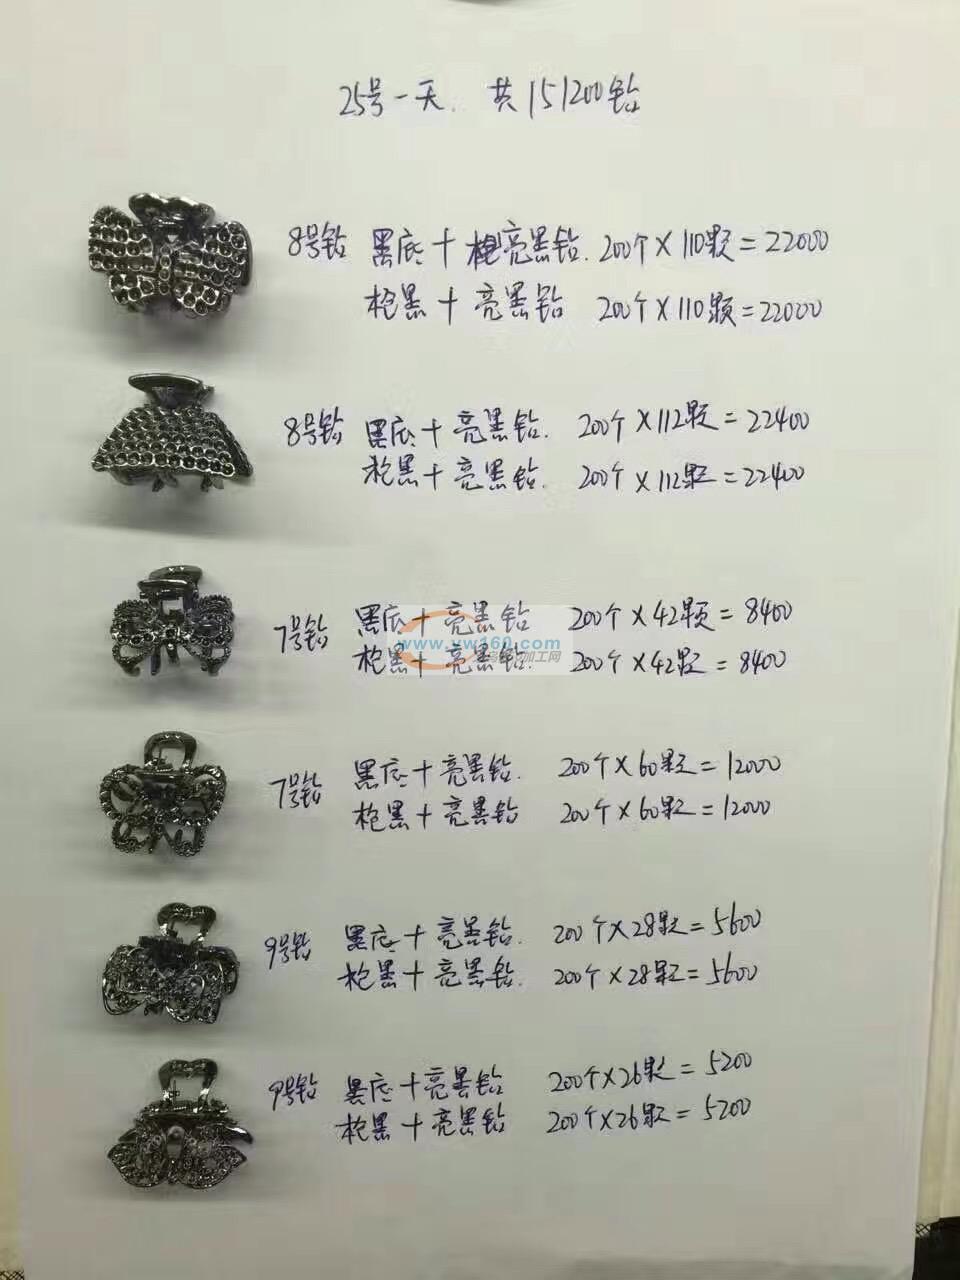 25号一天. 共151200钻
8号钻 黑底＋亮黑钻. 200个×110颗=22000
枪黑＋亮黑钻 200个×110颗=22000
8号钻 黑底＋亮黑钻. 200个×112颗=22400
枪黑＋亮黑钻. 200个×112颗=22400
7号钻 黑底＋亮黑钻 200个×42颗=8400
www.yw160.com
枪黑＋亮黑钻. 200个×42颗=8400
加工网
7号钻 黑底＋亮黑钻. 200个×60颗=12000
枪黑＋亮黑钻 200个×60颗=12000
9号钻 黑底＋亮黑钻. 200个×28颗=5600
枪黑＋亮黑钻. 200个×28颗=5600
9号钻 黑底＋亮黑钻 200个×26颗=5200
枪黑＋亮黑钻 200个×26颗=5200